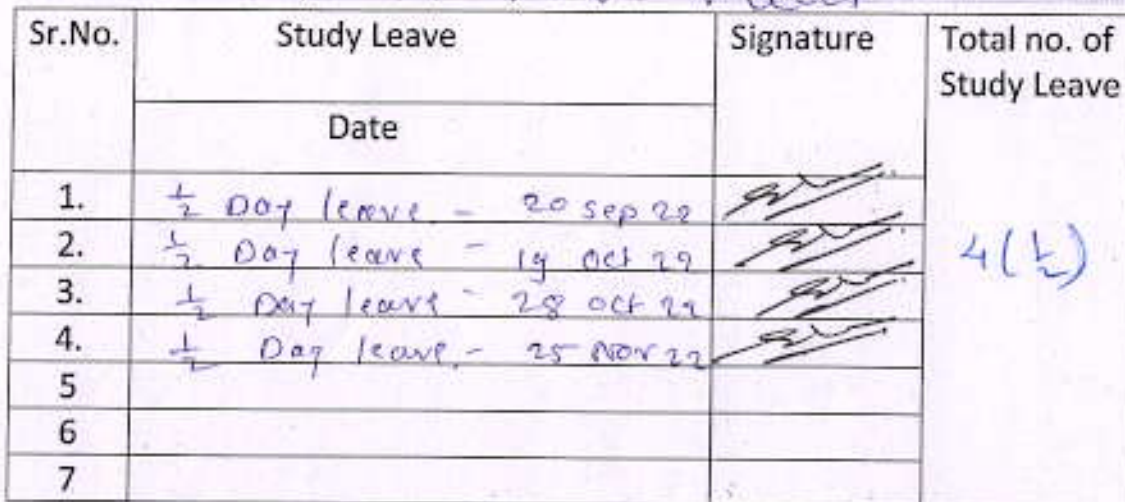 Sr.No. Study Leave Signature Total no. of
Study Leave
Date
1. ½ Day leave - 20 Sep 22
2. ½ Day leave - 19 Oct 22
3. ½ Day leave - 28 Oct 22
4. ½ Day leave - 25 Nov 22
4(½)
5
6
7